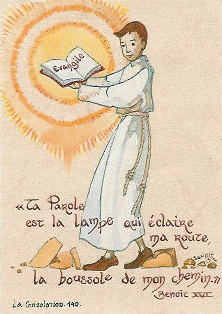 Evangile
«Ta Parole
est la lampe qui éclaire
ma route
la boussole de mon chemin.»
Benoît XVI
La Consolation. 140.